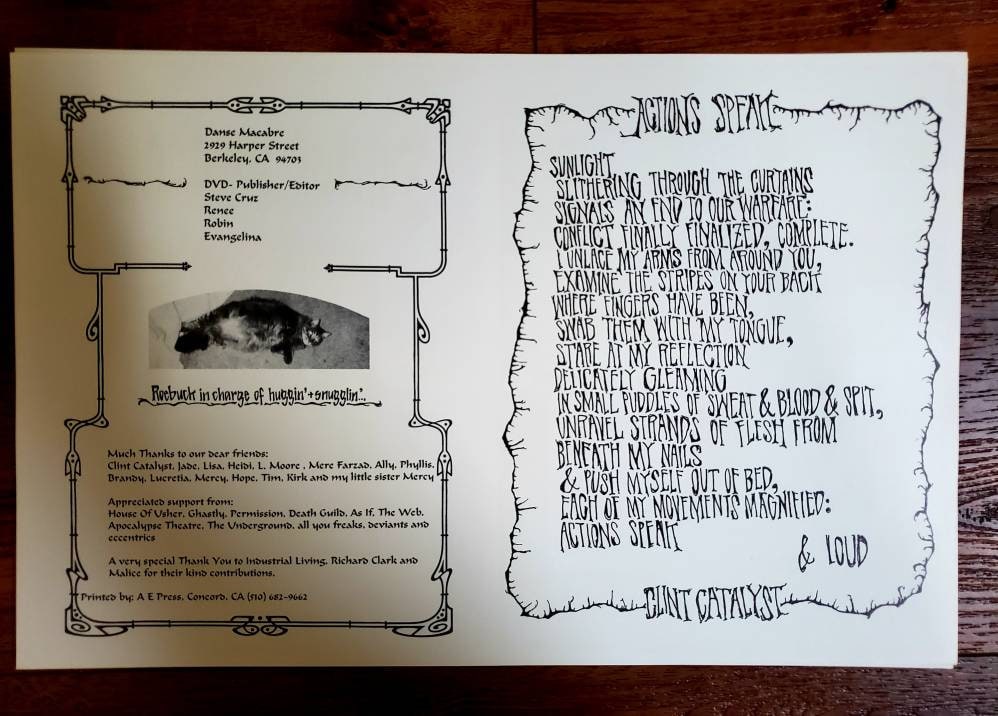 Danse Macabre
2929 Harper Street
Berkeley, CA 94703
DVD- Publisher/Editor
Steve Cruz
Renee
Robin
Evangelina
Roebuck in charge of huggin'+snugglin'.
Much Thanks to our dear friends:
Clint Catalyst, Jade, Lisa, Heidi, L. Moore , Mere Farzad, Ally, Phyllis,
Brandy, Lucretia, Mercy, Hope, Tim, Kirk and my little sister Mercy
Appreciated support from:
House Of Usher, Ghastly, Permission, Death Guild, As If, The Web,
Apocalypse Theatre, The Underground, all you freaks, deviants and
eccentrics
A very special Thank You to Industrial Living, Richard Clark and
Malice for their kind contributions.
Printed by: A E Press, Concord, CA (510) 682-9662
ACTIONS SPEAK
SUNLIGHT
SLITHERING THROUGH THE CURTAINS
SIGNALS AN END TO OUR WARFARE:
CONFLICT FINALLY FINALIZED, COMPLETE.
I UNLACE MY ARMS FROM AROUND YOU,
EXAMINE THE STRIPES ON YOUR BACK
WHERE FINGERS HAVE BEEN,
SWAB THEM WITH MY TONGUE,
STARE AT MY REFLECTION
DELICATELY GLEAMING
IN SMALL PUDDLES OF SWEAT & BLOOD & SPIT,
UNRAVEL STRANDS OF FLESH FROM
BENEATH MY NAILS
& PUSH MYSELF OUT OF BED,
EACH OF MY MOVEMENTS MAGNIFIED:
ACTIONS SPEAK
& LOUD
CLINT CATALYST